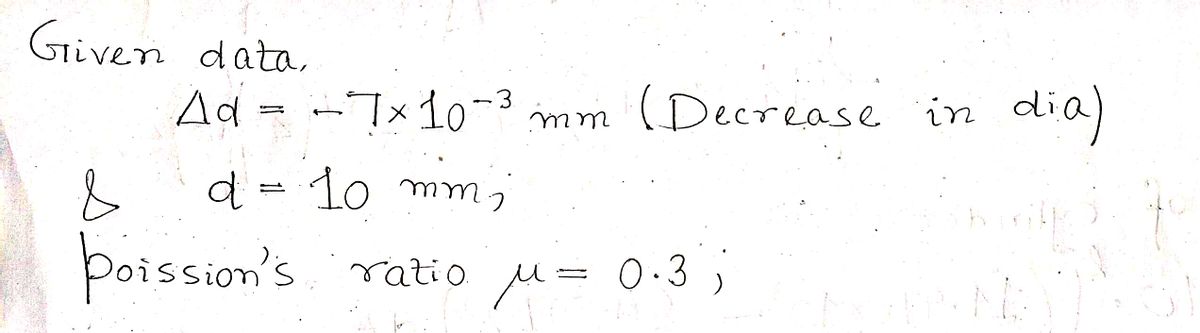 Given data,
Δd = -7×10⁻³ mm (Decrease in dia)
& d = 10 mm;
poission's ratio μ = 0.3;